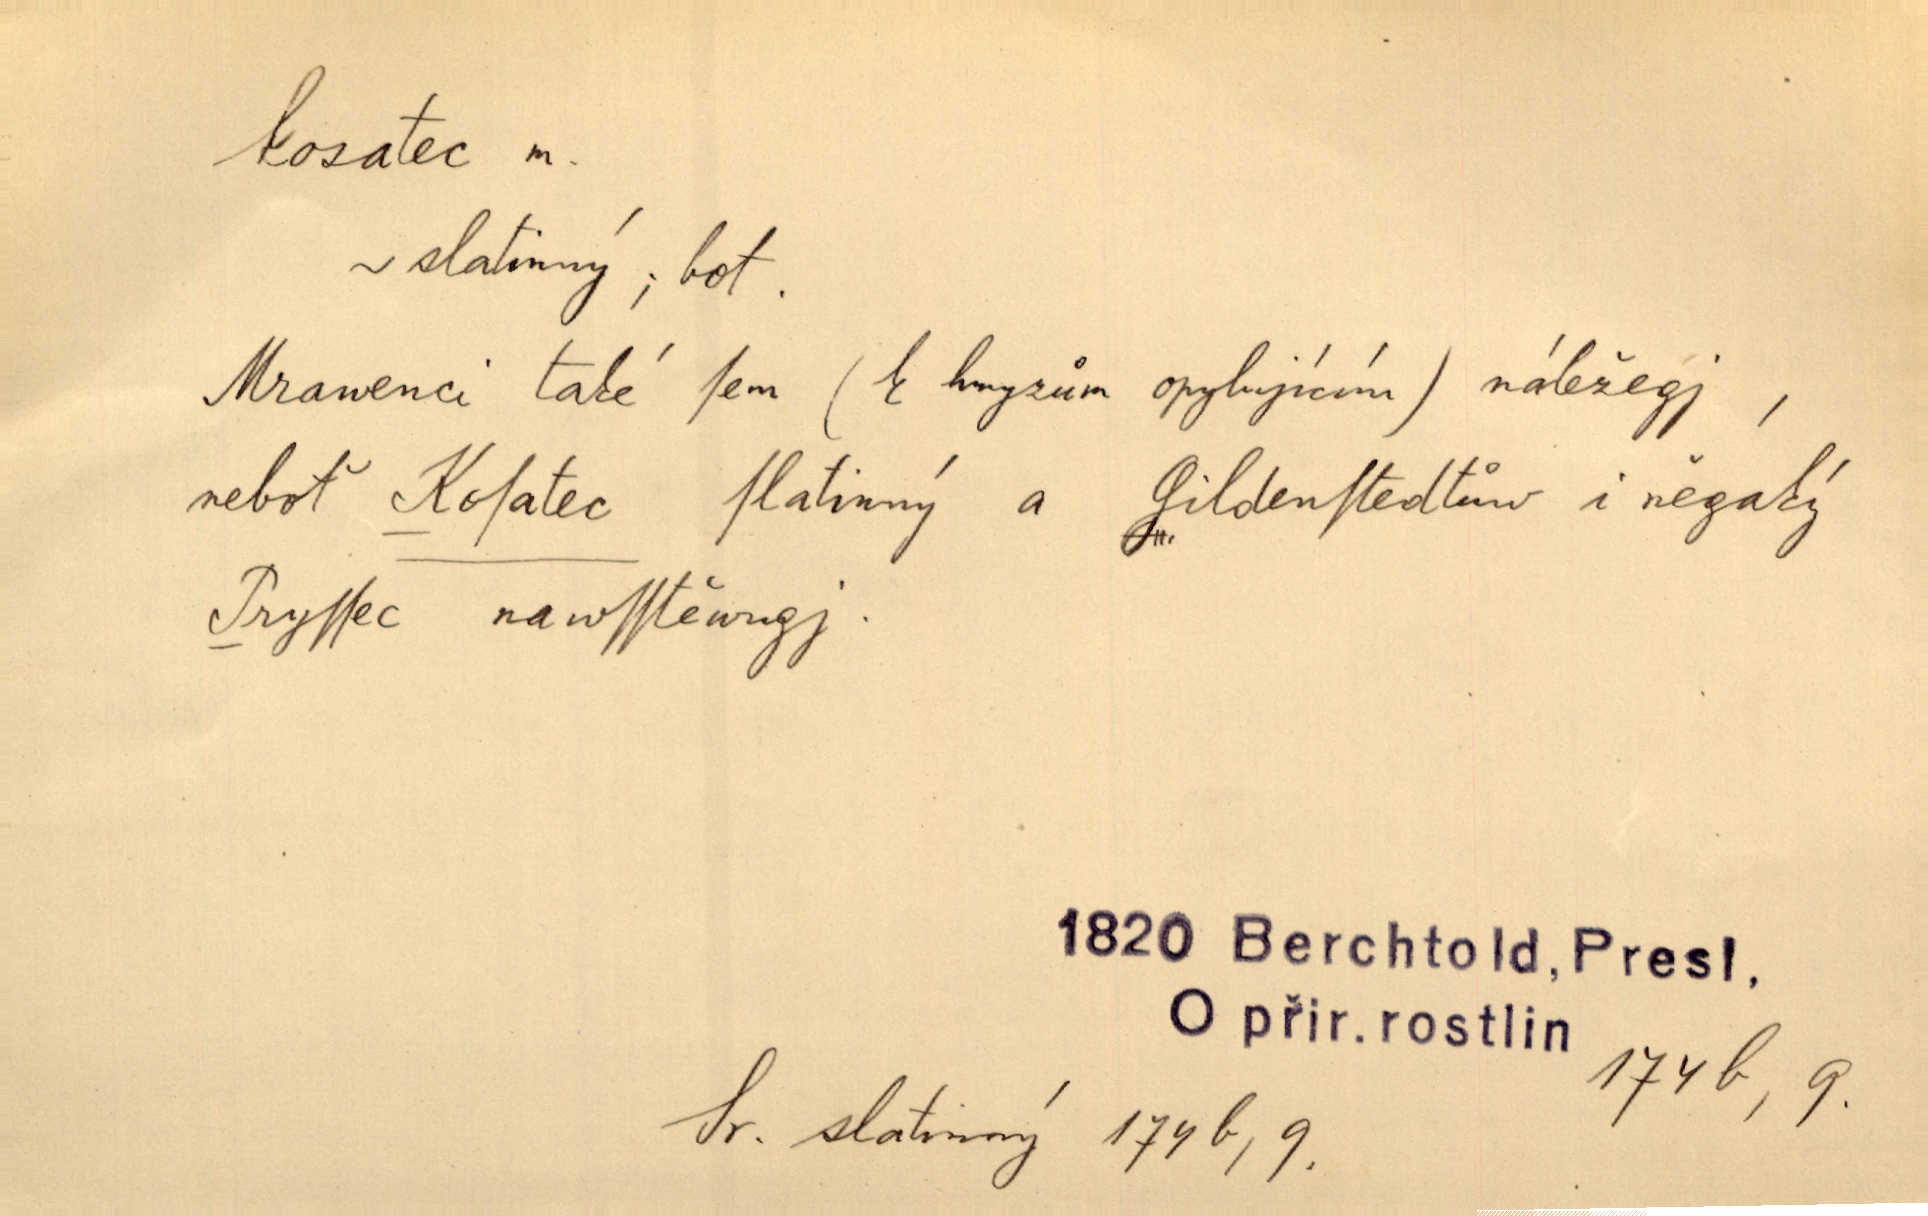 kosatec m.
~ slatinný ; bot.
Mrawenci také ſem (k hmyzům opylujícím) náležegj ,
neboť Koſatec ſlatinný a Gildenſtedtůw i něgaký
Pryſſec nawſſtěwugj.
1820 Berchtold, Presl,
O přir. rostlin
174b, 9.
Sr. slatinný 174b, 9.